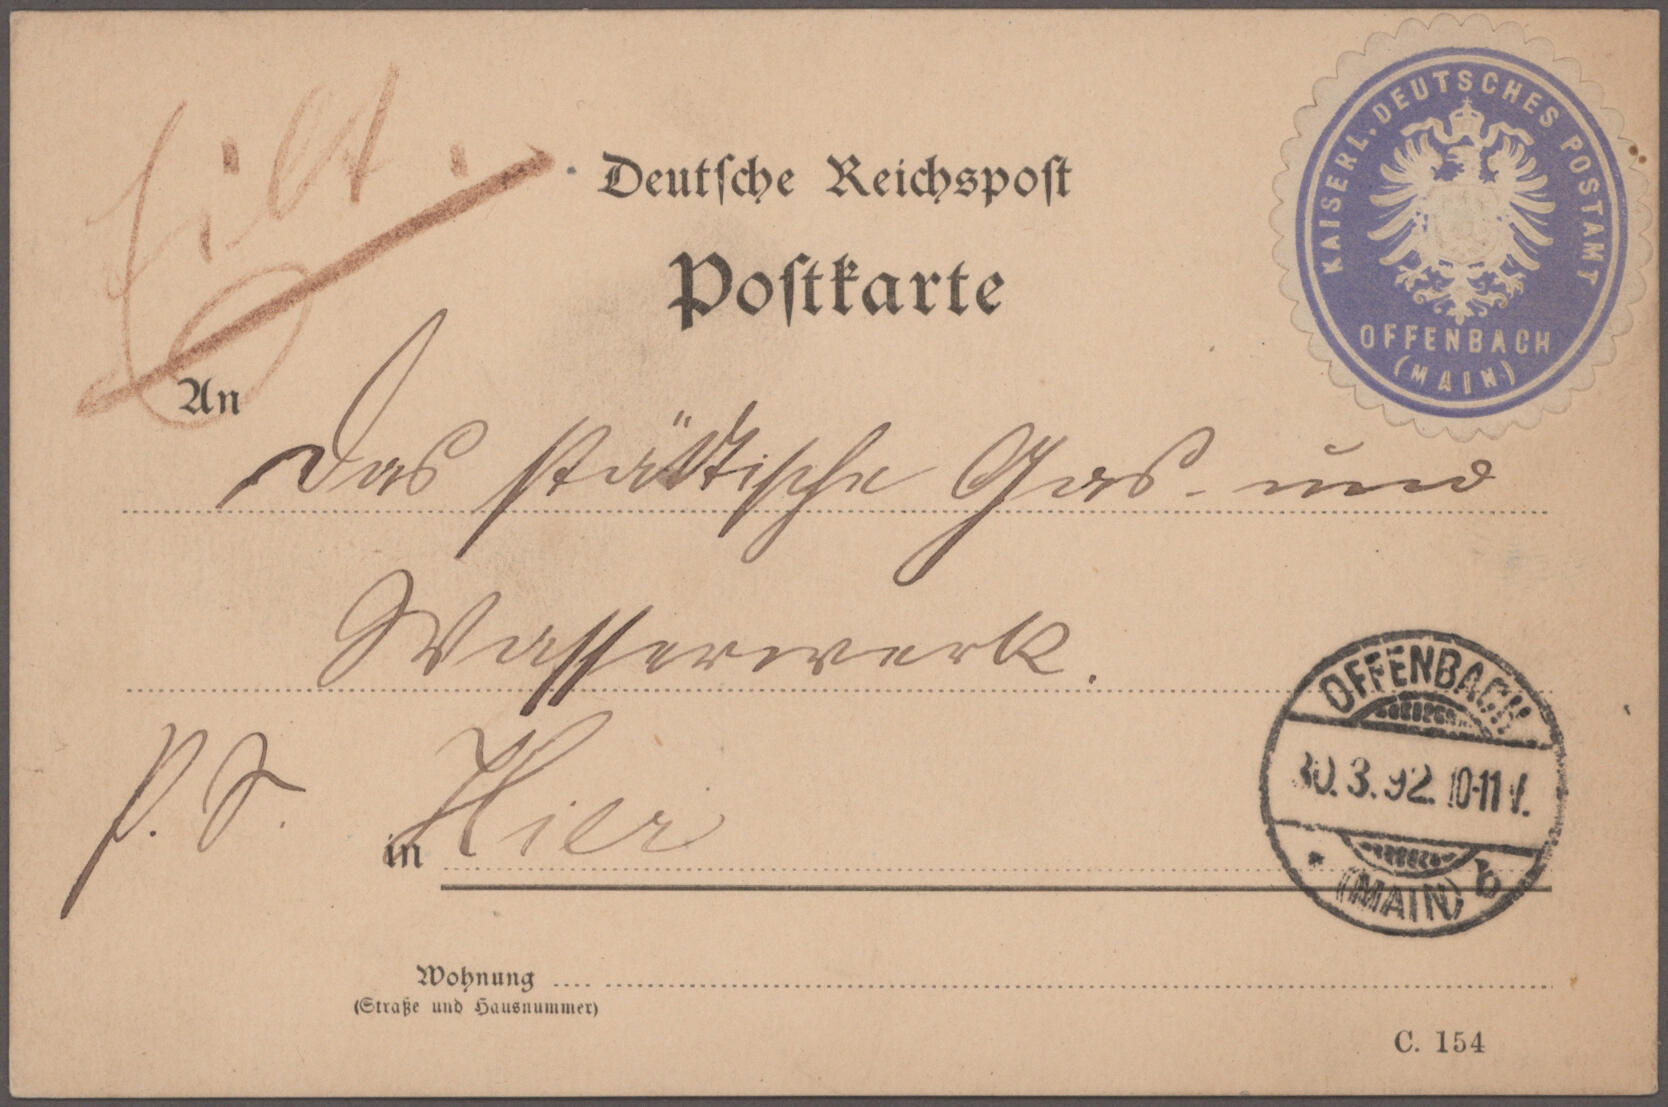 Eilt.
Deutsche Reichspost
Postkarte
KAISERL. DEUTSCHES POSTAMT
OFFENBACH
(MAIN)
An
Das städtische Gas- und
Wasserwerk.
P. S.
in Hier
OFFENBACH
30.3.92. 10-11 V.
* (MAIN) b
Wohnung
(Straße und Hausnummer)
C. 154